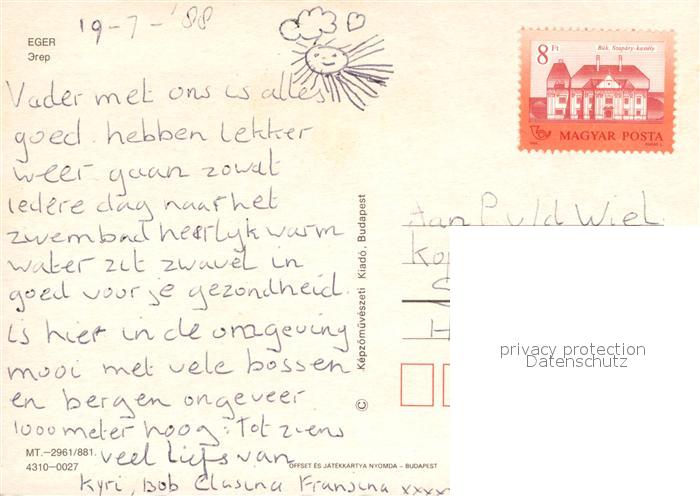 19-7-'88
EGER
Эгер
Vader met ons is alles
goed. hebben lekker
weer gaan zowat
iedere dag naar het
zwembad heerlyk warm
water zit zwavel in
goed voor je gezondheid.
is hier in de omgeving
mooi met vele bossen
en bergen ongeveer
1000 meter hoog. Tot ziens
veel liefs van
Kyri, Bob Clasina Fransina xxxx
MT.—2961/881.
4310-0027
OFFSET ÉS JÁTÉKKÁRTYA NYOMDA – BUDAPEST
© Képzőművészeti Kiadó, Budapest
8 Ft
Bük, Szapáry-kastély
MAGYAR POSTA
Aan P v/d Wiel
Kop
H
privacy protection
Datenschutz